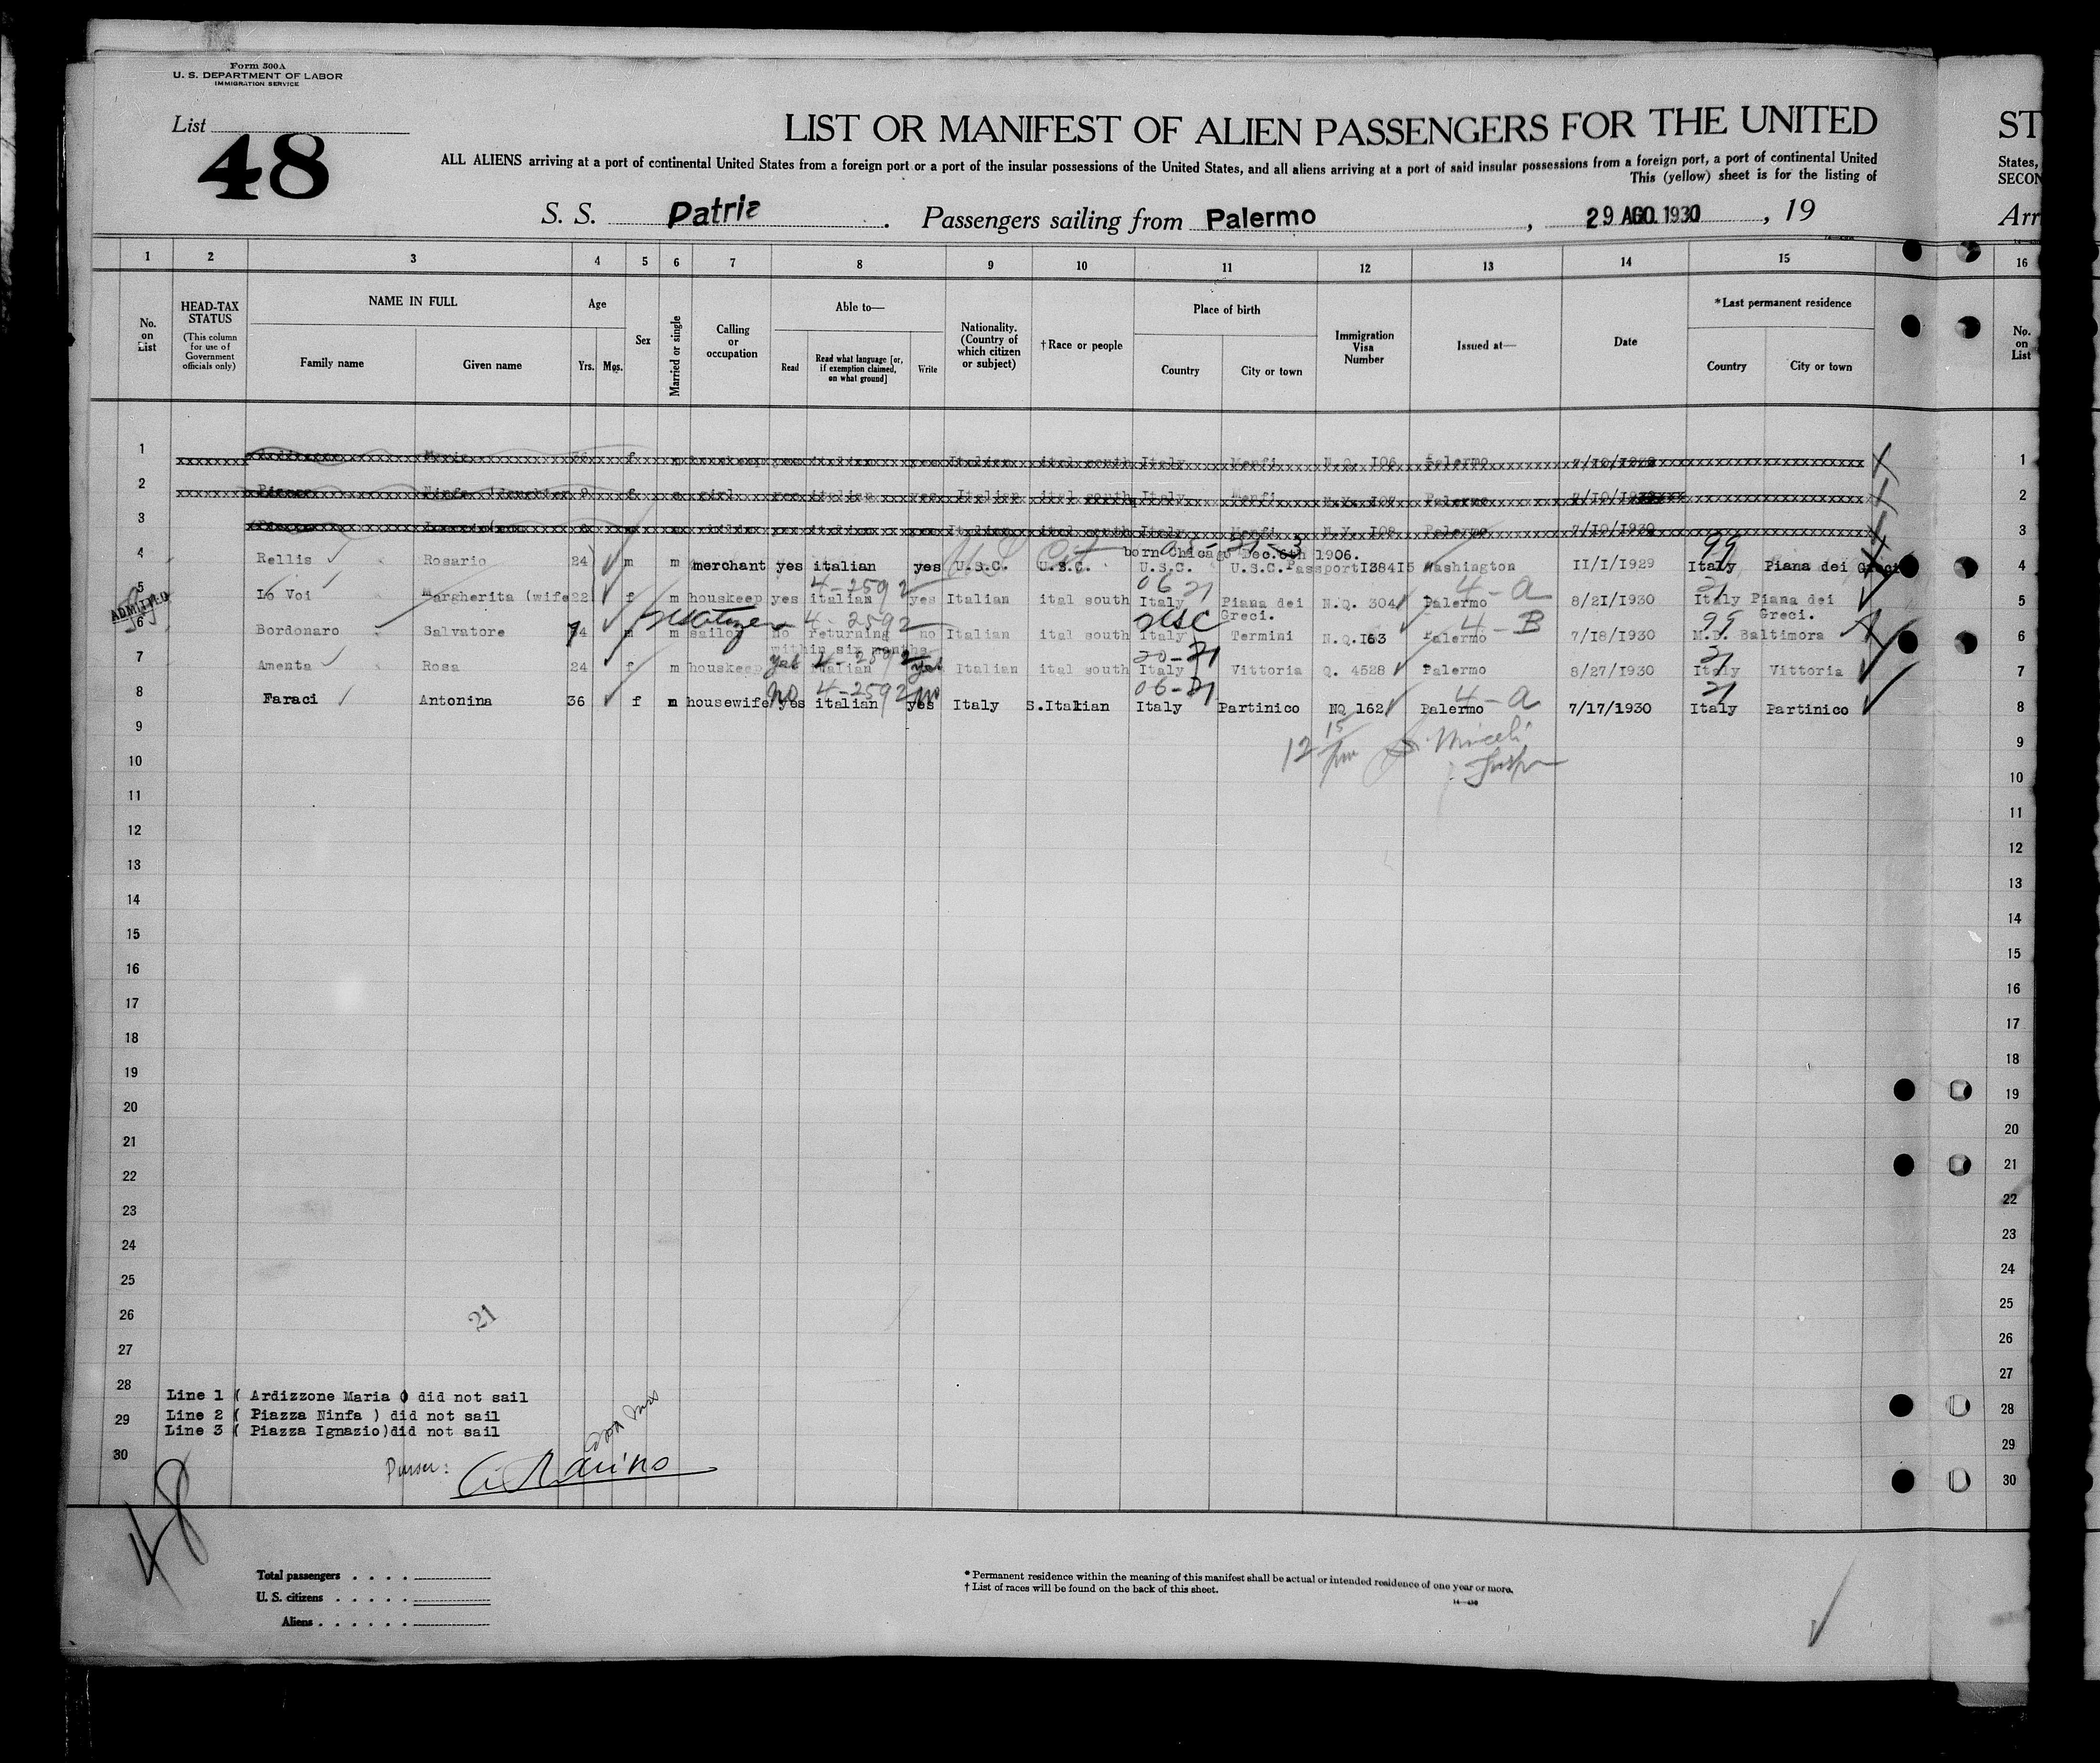 Form 500A
U. S. DEPARTMENT OF LABOR
IMMIGRATION SERVICE
List
48
LIST OR MANIFEST OF ALIEN PASSENGERS FOR THE UNITED
ST
ALL ALIENS arriving at a port of continental United States from a foreign port or a port of the insular possessions of the United States, and all aliens arriving at a port of said insular possessions from a foreign port, a port of continental United
States,
This (yellow) sheet is for the listing of
SECON
S. S. Patria. Passengers sailing from Palermo, 29 AGO. 1930, 19
Arr
1 2 3 4 5 6 7 8 9 10 11 12 13 14 15 16
No. on List
HEAD-TAX STATUS
(This column for use of Government officials only)
NAME IN FULL
Family name Given name
Age
Yrs. Mos.
Sex
Married or single
Calling or occupation
Able to—
Read
Read what language [or, if exemption claimed, on what ground]
Write
Nationality. (Country of which citizen or subject)
†Race or people
Place of birth
Country City or town
Immigration Visa Number
Issued at—
Date
*Last permanent residence
Country City or town
No. on List
1 f Italian ital south Italy Menfi N.Q. 106 Palermo 1
2 Ninfa (daughter 9 f girl italian yes Italian ital south Italy Menfi Palermo 2
3 yes italian yes Italian ital south Italy Menfi 108 Palermo 7/10/1930 3
born Chicago Dec.6th 1906.
4 Rellis Rosario 24 m m merchant yes italian yes U.S.C. U.S.C. U.S.C. U.S.C. Passport138415 Washington II/I/1929 99 Italy Piana dei Greci 4
4-2592 06 21 4-a 21
5 Lo Voi Margherita (wife 22 f m houskeep yes italian yes Italian ital south Italy Piana dei Greci. N.Q. 304 Palermo 8/21/1930 Italy Piana dei Greci. 5
ADMITTED
4-2592 USC 4-B 99
6 Bordonaro Salvatore m m sailor no returning within six months no Italian ital south Italy Termini N.Q.163 Palermo 7/18/1930 M.D. Baltimora 6
yes 4-2592 yes 20-21 21
7 Amenta Rosa 24 f m houskeep italian Italian ital south Italy Vittoria Q. 4528 Palermo 8/27/1930 Italy Vittoria 7
no 4-2592 no 06-21 4-a 21
8 Faraci Antonina 36 f m housewife yes italian yes Italy S.Italian Italy Partinico NQ 162 Palermo 7/17/1930 Italy Partinico 8
9 9
12 15 Miceli
10 10
11 11
12 12
13 13
14 14
15 15
16 16
17 17
18 18
19 19
20 20
21 21
22 22
23 23
24 24
25 25
26 26
21
27 27
28 28
Line 1 ( Ardizzone Maria ) did not sail
29 29
Line 2 ( Piazza Ninfa ) did not sail
Line 3 ( Piazza Ignazio)did not sail
30 30
Purser:
48
Total passengers . . . .
U. S. citizens . . . . .
Aliens . . . . . .
* Permanent residence within the meaning of this manifest shall be actual or intended residence of one year or more.
† List of races will be found on the back of this sheet.